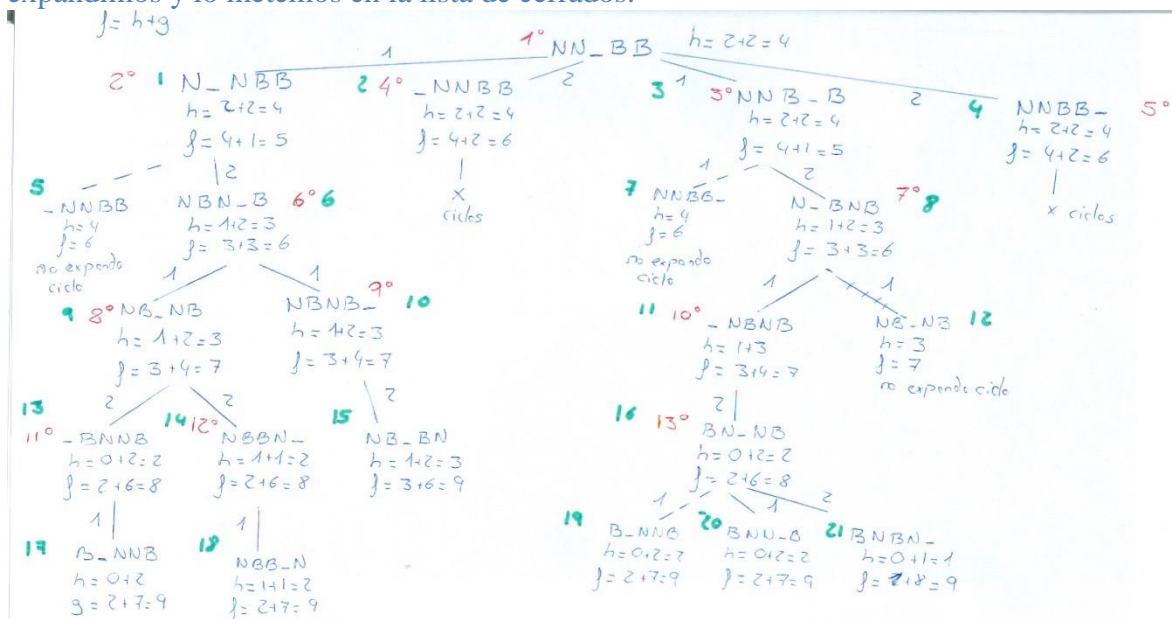 expandimos y lo metemos en la lista de cerrados.
f = h+g
1° NN_BB h= 2+2=4
1 2 1 2
2° 1 N_NBB
h= 2+2=4
f= 4+1=5
2 4° _NNBB
h= 2+2=4
f= 4+2=6
x
ciclos
3 3° NNB_B
h= 2+2=4
f= 4+1=5
4 NNBB_ 5°
h= 2+2=4
f= 4+2=6
x ciclos
2
5 _NNBB
h=4
f=6
no expando
ciclo
NBN_B 6° 6
h= 1+2=3
f= 3+3=6
1 2
7 NNBB_
h=4
f=6
no expando
ciclo
N_BNB 7° 8
h= 1+2=3
f= 3+3=6
1 1
9 8° NB_NB
h= 1+2=3
f= 3+4=7
NBNB_ 9° 10
h= 1+2=3
f= 3+4=7
1 1
11 10° _NBNB
h= 1+3
f= 3+4=7
NB_NB 12
h=3
f=7
no expando ciclo
2 2
13 11° _BNNB
h= 0+2=2
f= 2+6=8
14 12° NBBN_
h= 1+1=2
f= 2+6=8
2
15 NB_BN
h= 1+2=3
f= 3+6=9
2
16 13° BN_NB
h= 0+2=2
f= 2+6=8
1
17 B_NNB
h= 0+2
g= 2+7=9
1
18 NBB_N
h= 1+1=2
f= 2+7=9
1 1 2
19 B_NNB
h= 0+2=2
f= 2+7=9
20 BNN_B
h= 0+2=2
f= 2+7=9
21 BNBN_
h= 0+1=1
f= 1+8=9